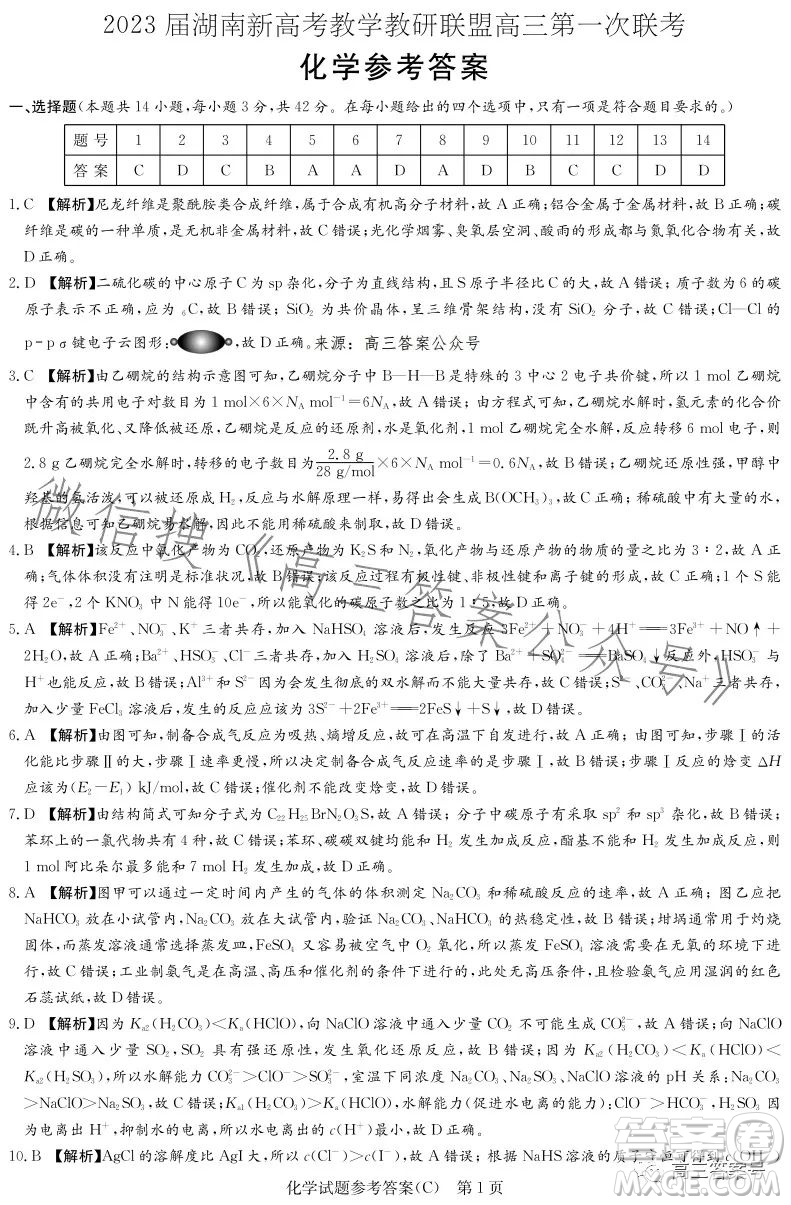 2023 届湖南新高考教学教研联盟高三第一次联考
化学参考答案
一、选择题(本题共 14 小题,每小题 3 分,共 42 分。在每小题给出的四个选项中,只有一项是符合题目要求的。)
题号 1 2 3 4 5 6 7 8 9 10 11 12 13 14
答案 C D C B A A D A D B C C D D
1.C 【解析】尼龙纤维是聚酰胺类合成纤维,属于合成有机高分子材料,故 A 正确;铝合金属于金属材料,故 B 正确;碳
纤维是碳的一种单质,是无机非金属材料,故 C 错误;光化学烟雾、臭氧层空洞、酸雨的形成都与氮氧化合物有关,故
D 正确。
2.D 【解析】二硫化碳的中心原子 C 为 sp 杂化,分子为直线结构,且 S 原子半径比 C 的大,故 A 错误;质子数为 6 的碳
原子表示不正确,应为 ₆C,故 B 错误;SiO₂ 为共价晶体,呈三维骨架结构,没有 SiO₂ 分子,故 C 错误;Cl—Cl 的
p-pσ 键电子云图形: ,故 D 正确。来源:高三答案公众号
3.C 【解析】由乙硼烷的结构示意图可知,乙硼烷分子中 B—H—B 是特殊的 3 中心 2 电子共价键,所以 1 mol 乙硼烷
中含有的共用电子对数目为 1 mol×6×N_A mol⁻¹=6N_A,故 A 错误;由方程式可知,乙硼烷水解时,氢元素的化合价
既升高被氧化、又降低被还原,乙硼烷是反应的还原剂,水是氧化剂,1 mol 乙硼烷完全水解,反应转移 6 mol 电子,则
2.8 g 乙硼烷完全水解时,转移的电子数目为 2.8 g/28 g/mol ×6×N_A mol⁻¹=0.6N_A,故 B 错误;乙硼烷还原性强,甲醇中
羟基的氢活泼,可以被还原成 H₂,反应与水解原理一样,易得出会生成 B(OCH₃)₃,故 C 正确;稀硫酸中有大量的水,
根据信息可知乙硼烷易水解,因此不能用稀硫酸来制取,故 D 错误。
4.B 【解析】该反应中氧化产物为 CO₂,还原产物为 K₂S 和 N₂,氧化产物与还原产物的物质的量之比为 3∶2,故 A 正
确;气体体积没有注明是标准状况,故 B 错误;该反应过程有极性键、非极性键和离子键的形成,故 C 正确;1 个 S 能
得 2e⁻,2 个 KNO₃ 中 N 能得 10e⁻,所以能氧化的碳原子数之比为 1∶5,故 D 正确。
5.A 【解析】Fe²⁺、NO₃⁻、K⁺ 三者共存,加入 NaHSO₄ 溶液后,发生反应 3Fe²⁺+NO₃⁻+4H⁺══3Fe³⁺+NO↑+
2H₂O,故 A 正确;Ba²⁺、HSO₃⁻、Cl⁻三者共存,加入 H₂SO₄ 溶液后,除了 Ba²⁺+SO₄²⁻══BaSO₄↓反应外,HSO₃⁻ 与
H⁺也能反应,故 B 错误;Al³⁺和 S²⁻因为会发生彻底的双水解而不能大量共存,故 C 错误;S²⁻、CO₃²⁻、Na⁺三者共存,
加入少量 FeCl₃ 溶液后,发生的反应应该为 3S²⁻+2Fe³⁺══2FeS↓+S↓,故 D 错误。
6.A 【解析】由图可知,制备合成气反应为吸热、熵增反应,故可在高温下自发进行,故 A 正确;由图可知,步骤Ⅰ的活
化能比步骤Ⅱ的大,步骤Ⅰ速率更慢,所以决定制备合成气反应速率的是步骤Ⅰ,故 B 错误;步骤Ⅰ反应的焓变 ΔH
应该为(E₂−E₁) kJ/mol,故 C 错误;催化剂不能改变焓变,故 D 错误。
7.D 【解析】由结构简式可知分子式为 C₂₂H₂₅BrN₂O₃S,故 A 错误;分子中碳原子有采取 sp² 和 sp³ 杂化,故 B 错误;
苯环上的一氯代物共有 4 种,故 C 错误;苯环、碳碳双键均能和 H₂ 发生加成反应,酯基不能和 H₂ 发生加成反应,则
1 mol 阿比朵尔最多能和 7 mol H₂ 发生加成,故 D 正确。
8.A 【解析】图甲可以通过一定时间内产生的气体的体积测定 Na₂CO₃ 和稀硫酸反应的速率,故 A 正确;图乙应把
NaHCO₃ 放在小试管内,Na₂CO₃ 放在大试管内,验证 Na₂CO₃、NaHCO₃ 的热稳定性,故 B 错误;坩埚通常用于灼烧
固体,而蒸发溶液通常选择蒸发皿,FeSO₄ 又容易被空气中 O₂ 氧化,所以蒸发 FeSO₄ 溶液需要在无氧的环境下进
行,故 C 错误;工业制氨气是在高温、高压和催化剂的条件下进行的,此处无高压条件,且检验氨气应用湿润的红色
石蕊试纸,故 D 错误。
9.D 【解析】因为 Kₐ₂(H₂CO₃)<Kₐ(HClO),向 NaClO 溶液中通入少量 CO₂ 不可能生成 CO₃²⁻,故 A 错误;向 NaClO
溶液中通入少量 SO₂,SO₂ 具有强还原性,发生氧化还原反应,故 B 错误;因为 Kₐ₂(H₂CO₃)<Kₐ(HClO)<
Kₐ₂(H₂SO₃),所以水解能力 CO₃²⁻>ClO⁻>SO₃²⁻,室温下同浓度 Na₂CO₃、Na₂SO₃、NaClO 溶液的 pH 关系:Na₂CO₃
>NaClO>Na₂SO₃,故 C 错误;Kₐ₁(H₂CO₃)>Kₐ(HClO),水解能力(促进水电离的能力):ClO⁻>HCO₃⁻,H₂SO₃ 因
为电离出 H⁺,抑制水的电离,所以水电离出的 c(H⁺)最小,故 D 正确。
10.B 【解析】AgCl 的溶解度比 AgI 大,所以 c(Cl⁻)>c(I⁻),故 A 错误;根据 NaHS 溶液的质子守恒可得到 c(OH⁻)
化学试题参考答案(C) 第 1 页
微信搜《高三答案公众号》
答案卷
高三答案号